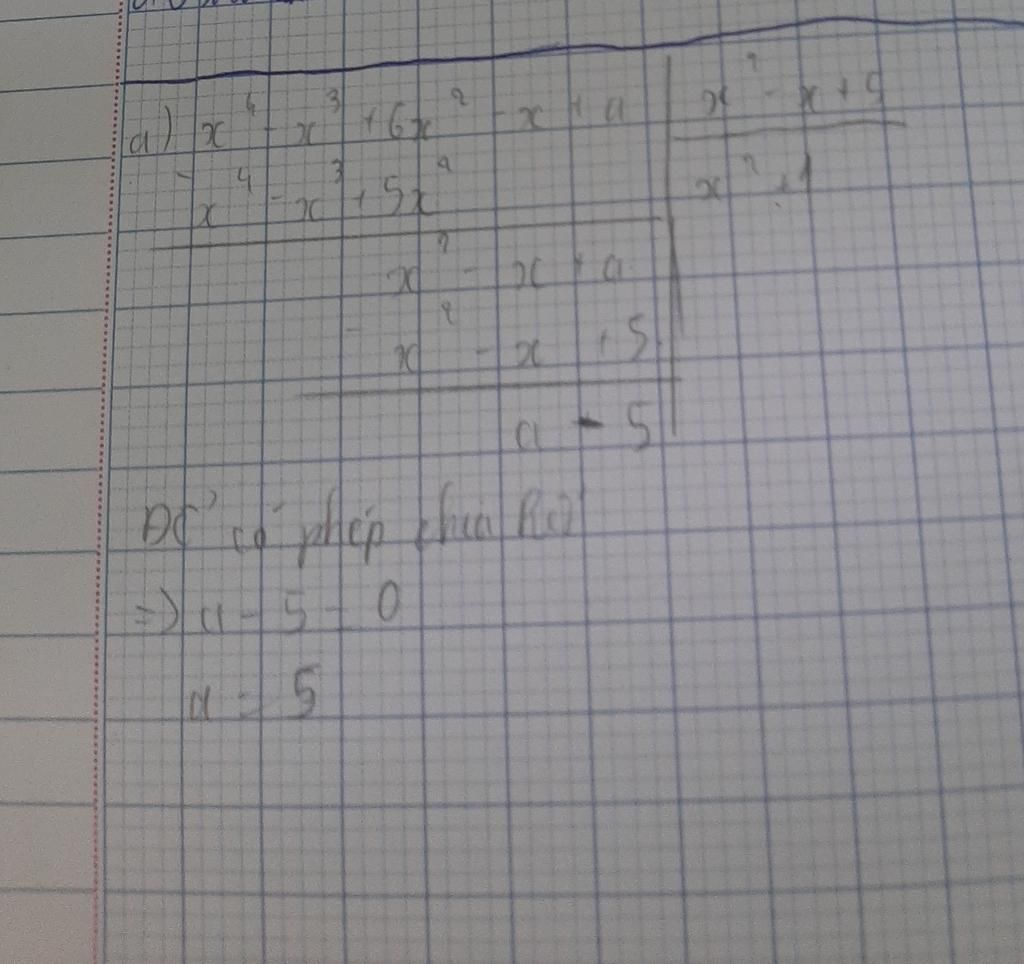 a) x⁴ - x³ + 6x² - x + a | x² - x + 5
- x⁴ - x³ + 5x² | x² + 1
x² - x + a
- x² - x + 5
a - 5
Để có phép chia hết
=> a - 5 = 0
a = 5